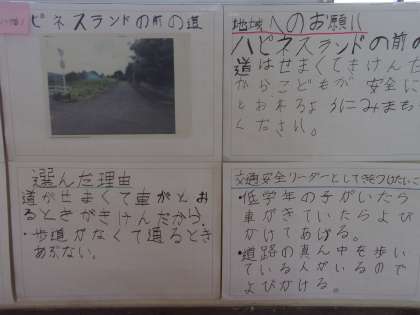 ピネスランドの前の道
地域へのお願い
ハピネスランドの前の
道はせまくてきけんだ
からこどもが安全に
とおれるようにみまも
ください。
選んだ理由
道がせまくて車がとお
るときがきけんだから。
・歩道がなくて通るとき
あぶない。
交通安全リーダーとしてきをつけたいこと
・低学年の子がいたら
車がきていたらよび
かけてあげる。
・道路の真ん中を歩い
ている人がいるので
よびかける。